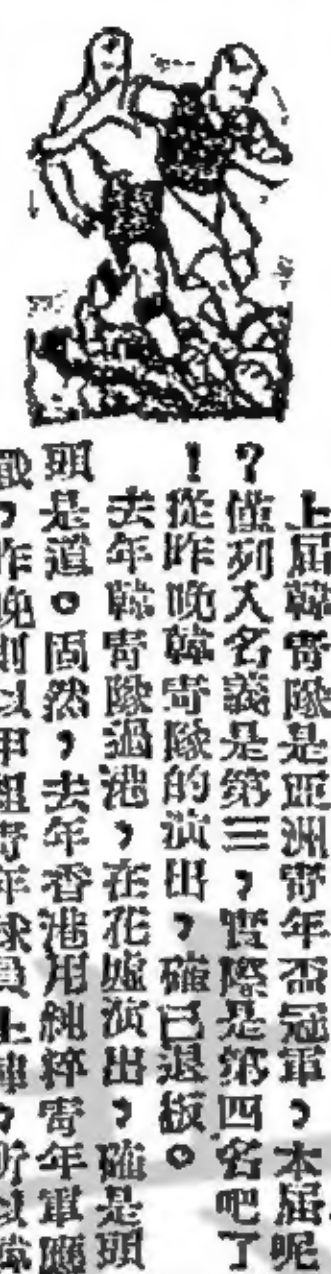 上屆韓青隊是亞洲青年盃冠軍，本屆呢
？僅列入名義是第三，實際是第四名吧了
！從昨晚韓青隊的演出，確已退板。
去年韓青隊過港，在花墟演出，確是頭
頭是道。固然，去年香港用純粹青年軍應
戰，昨晚則以甲組青年球員上陣，所以